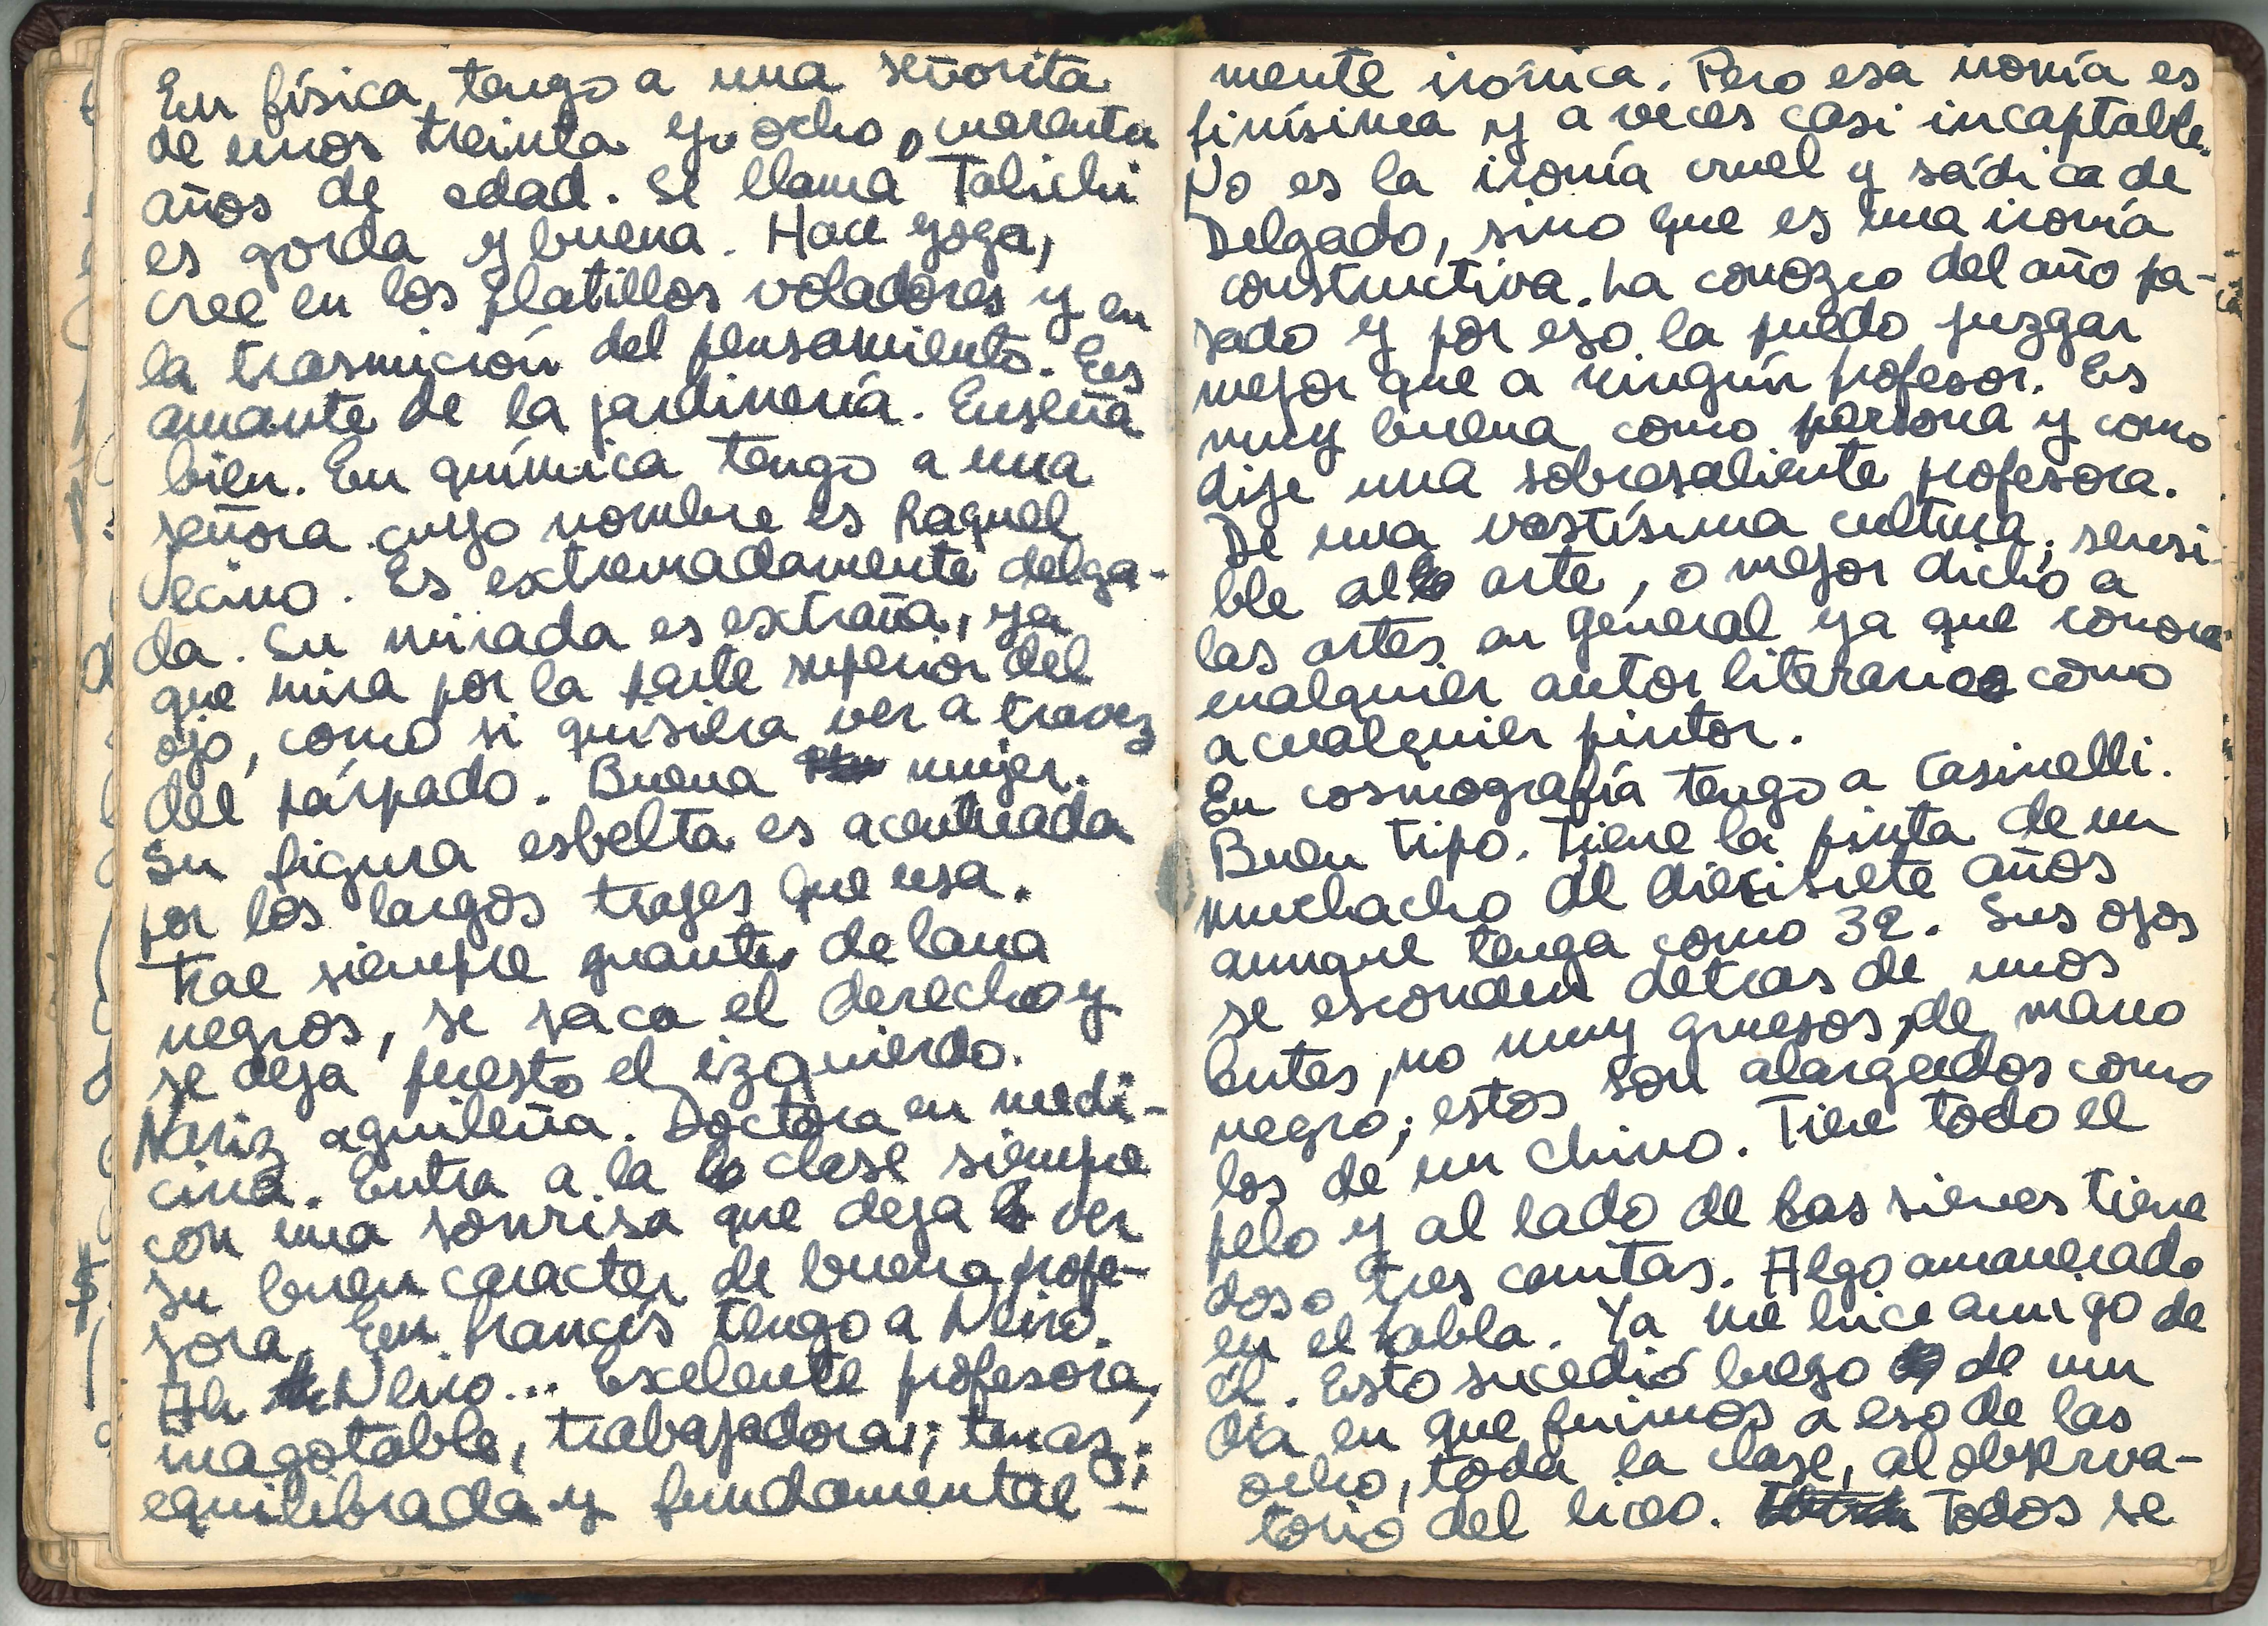 En física, tengo a una señorita
de unos treinta y ocho o cuarenta
años de edad. Se llama Talichi
es gorda y buena. Hace yoga,
cree en los platillos voladores y en
la trasmición del pensamiento. Es
amante de la jardinería. Enseña
bien. En química tengo a una
señora cuyo nombre es Raquel
Vecino. Es extremadamente delga-
da. Su mirada es extraña, ya
que mira por la parte superior del
ojo, como si quisiera ver a travez
del párpado. Buena mujer.
Su figura esbelta es acentuada
por los largos trajes que usa.
Trae siempre guantes de lana
negros, se saca el derecho y
se deja puesto el izquierdo.
Nariz aguileña. Doctora en medi-
cina. Entra a la clase siempre
con una sonrisa que deja ver
su buen caracter de buena profe-
sora. En francés tengo a Neiro.
Ah Neiro... Excelente profesora,
inagotable, trabajadora; tenaz;
equilibrada y fundamental-
mente irónica. Pero esa ironía es
finísima y a veces casi incaptable.
No es la ironía cruel y sádica de
Delgado, sino que es una ironía
constructiva. La conozco del año pa-
sado y por eso la puedo juzgar
mejor que a ningún profesor. Es
muy buena como persona y como
dije una sobresaliente profesora.
De una vastísima cultura; sensi-
ble al arte, o mejor dicho a
las artes en general ya que conoce
cualquier autor literario como
a cualquier pintor.
En cosmografía tengo a Casinelli.
Buen tipo. Tiene la pinta de un
muchacho de diecisiete años
aunque tenga como 32. Sus ojos
se esconden detras de unos
lentes, no muy gruesos, de marco
negro; estos son alargados como
los de un chino. Tiene todo el
pelo y al lado de las sienes tiene
dos o tres canitas. Algo amanerado
en el habla. Ya me hice amigo de
él. Esto sucedió luego de un
día en que fuimos a eso de las
ocho, toda la clase, al observa-
torio del liceo. Todos se